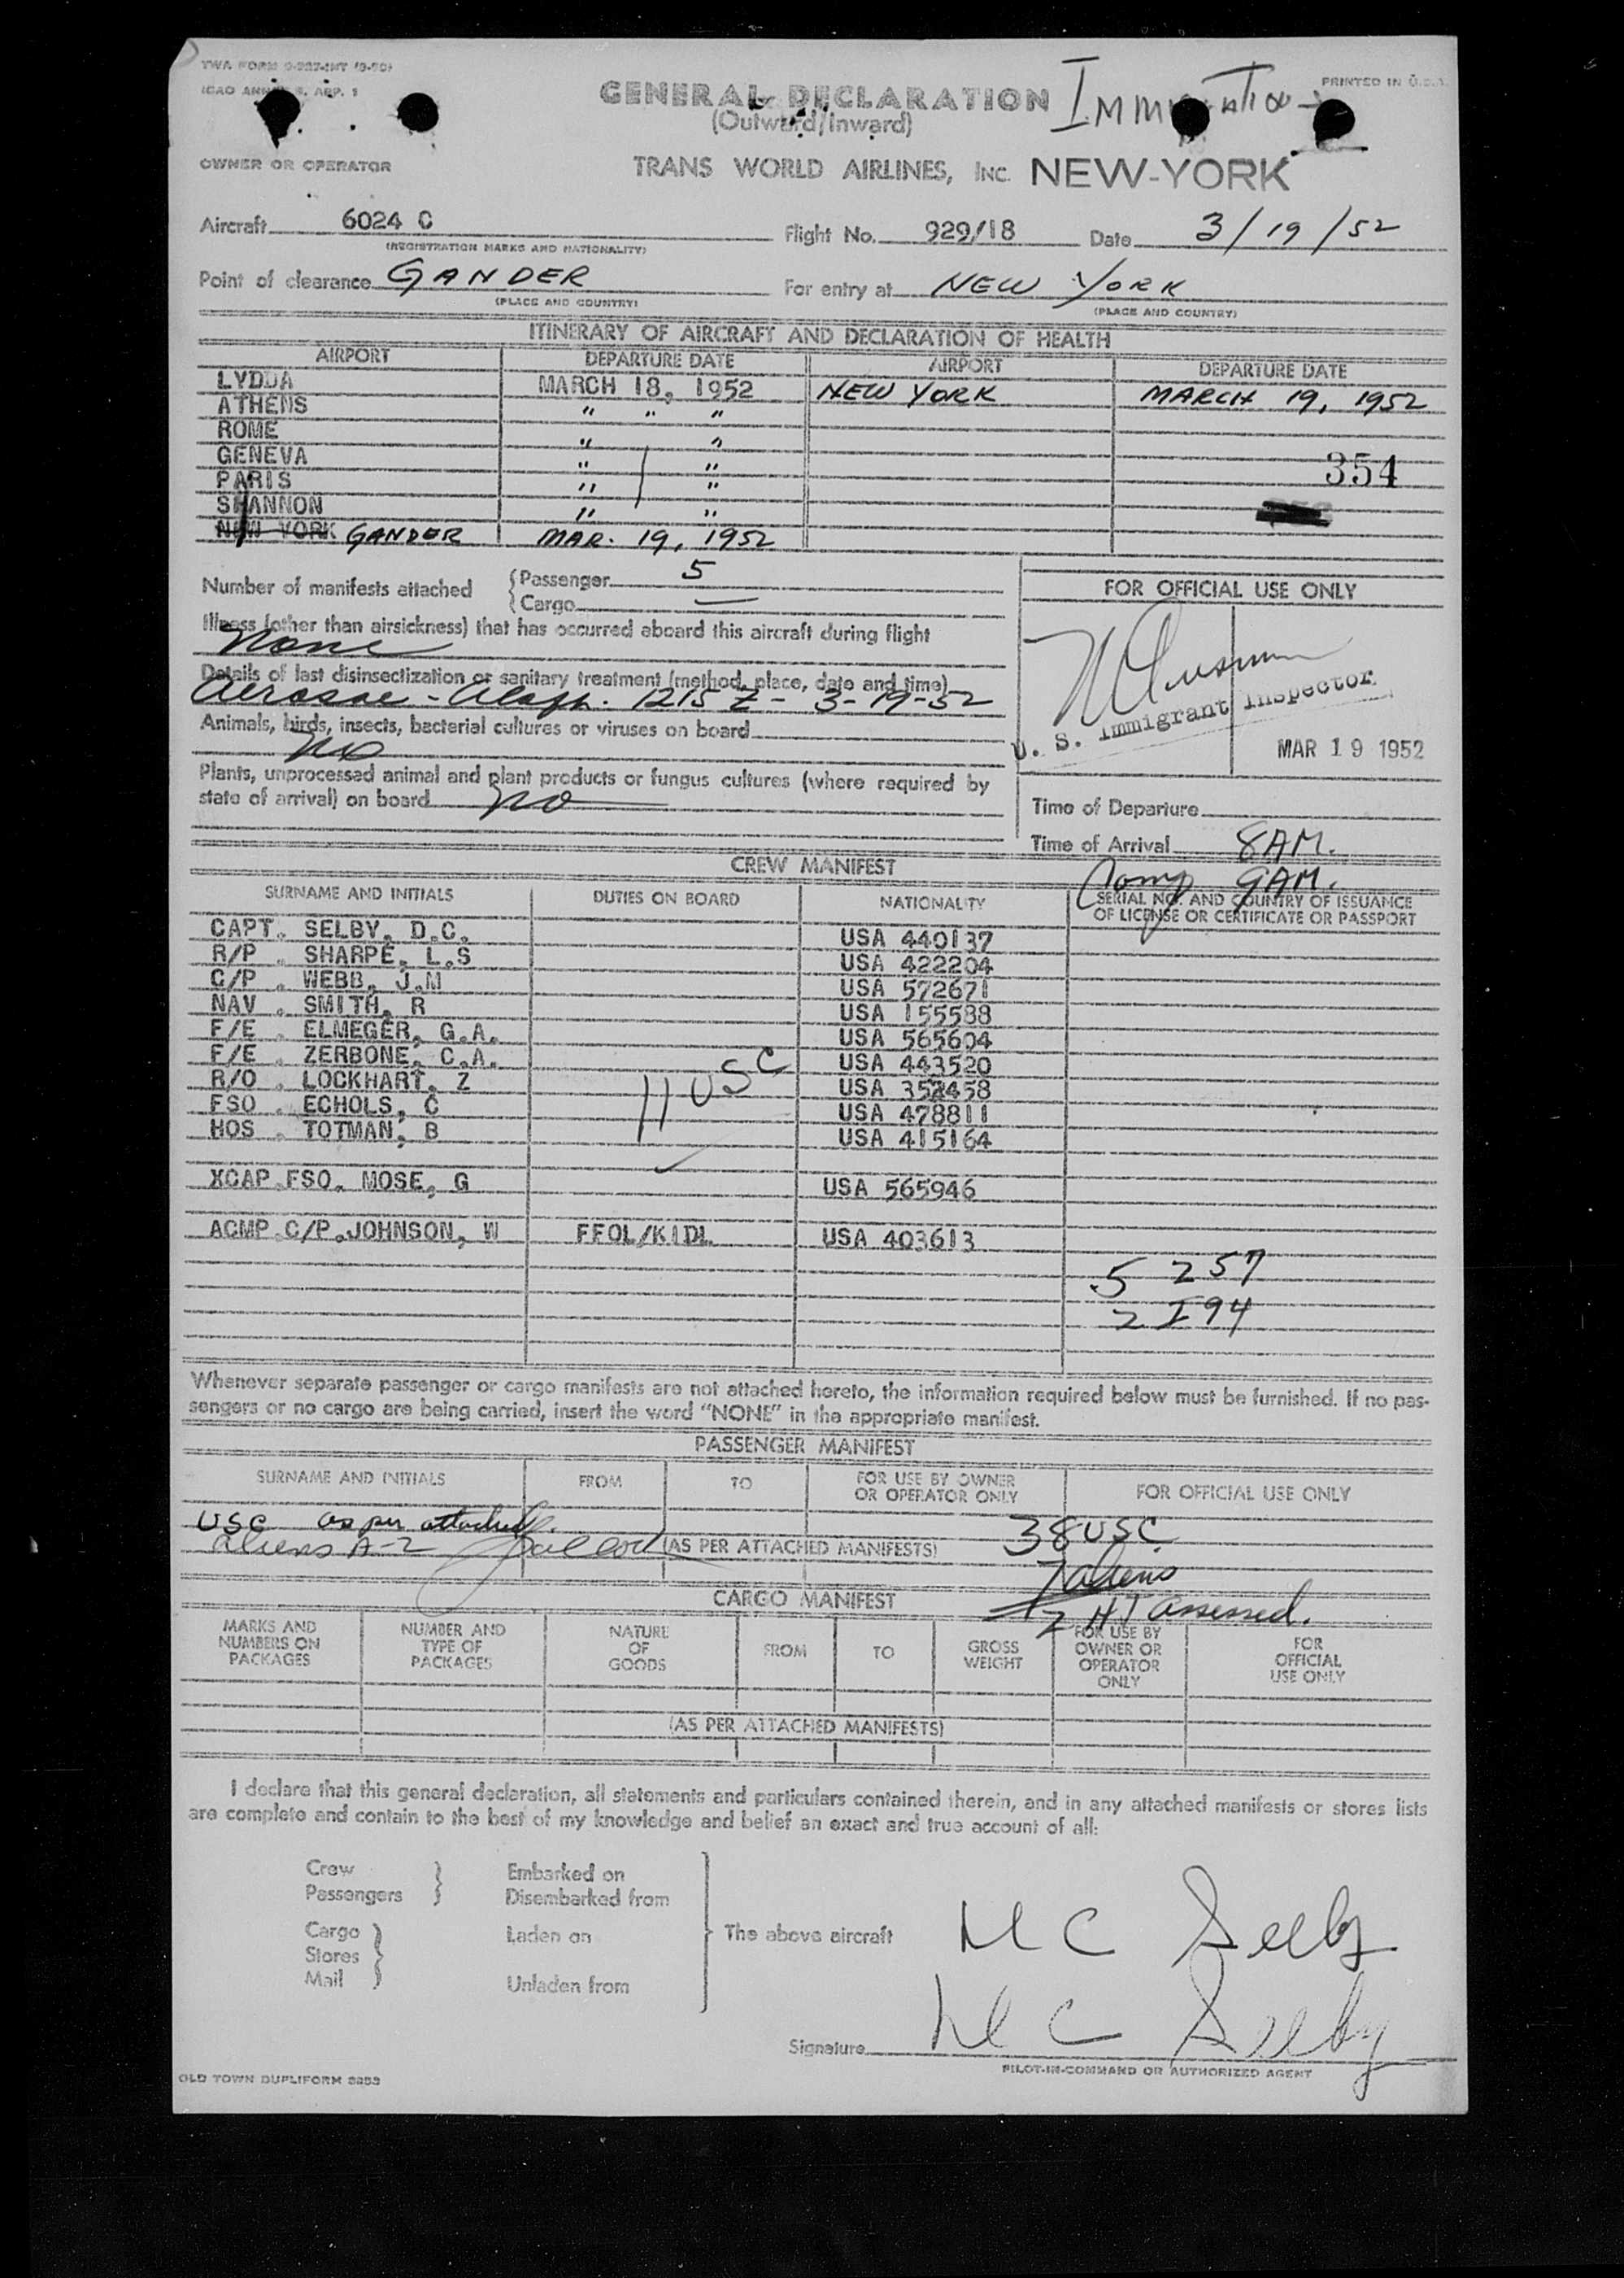 TWA FORM
ICAO ANNEX 9, APP. 1
PRINTED IN U.S.A.
GENERAL DECLARATION
(Outward/Inward)
OWNER OR OPERATOR
TRANS WORLD AIRLINES, INC. NEW-YORK
Aircraft 6024 C
(REGISTRATION MARKS AND NATIONALITY)
Flight No. 929/18 Date 3/19/52
Point of clearance GANDER
(PLACE AND COUNTRY)
For entry at NEW YORK
(PLACE AND COUNTRY)
ITINERARY OF AIRCRAFT AND DECLARATION OF HEALTH
AIRPORT DEPARTURE DATE AIRPORT DEPARTURE DATE
LYDDA MARCH 18, 1952 NEW YORK MARCH 19, 1952
ATHENS " " "
ROME " "
GENEVA " "
PARIS " " 354
SHANNON " "
NEW YORK GANDER MAR. 19, 1952
Number of manifests attached { Passenger 5
{ Cargo —
FOR OFFICIAL USE ONLY
Illness (other than airsickness) that has occurred aboard this aircraft during flight
None
Details of last disinsectization or sanitary treatment (method, place, date and time)
1215 Z - 3-19-52
U. S. Immigrant Inspector
Animals, birds, insects, bacterial cultures or viruses on board
No
MAR 19 1952
Plants, unprocessed animal and plant products or fungus cultures (where required by
state of arrival) on board No
Time of Departure
Time of Arrival 8AM.
Comp 9AM.
CREW MANIFEST
SURNAME AND INITIALS DUTIES ON BOARD NATIONALITY SERIAL NO. AND COUNTRY OF ISSUANCE
OF LICENSE OR CERTIFICATE OR PASSPORT
CAPT. SELBY, D.C. USA 440137
R/P . SHARPE, L.S USA 422204
C/P . WEBB, J.M USA 572671
NAV . SMITH, R USA 155588
F/E . ELMEGER, G.A. USA 565604
F/E . ZERBONE, C.A. USA 443520
R/O . LOCKHART, Z 11 USC USA 352458
FSO . ECHOLS, C USA 478811
HOS . TOTMAN, B USA 415164
XCAP.FSO. MOSE, G USA 565946
ACMP.C/P.JOHNSON, W FFOL/KIDL USA 403613
5 257
2 I94
Whenever separate passenger or cargo manifests are not attached hereto, the information required below must be furnished. If no pas-
sengers or no cargo are being carried, insert the word "NONE" in the appropriate manifest.
PASSENGER MANIFEST
SURNAME AND INITIALS FROM TO FOR USE BY OWNER
OR OPERATOR ONLY FOR OFFICIAL USE ONLY
USC as per attached.
38 USC
aliens A-2
(AS PER ATTACHED MANIFESTS)
7 aliens
2 HT assessed.
CARGO MANIFEST
MARKS AND
NUMBERS ON
PACKAGES
NUMBER AND
TYPE OF
PACKAGES
NATURE
OF
GOODS
FROM
TO
GROSS
WEIGHT
FOR USE BY
OWNER OR
OPERATOR
ONLY
FOR
OFFICIAL
USE ONLY
(AS PER ATTACHED MANIFESTS)
I declare that this general declaration, all statements and particulars contained therein, and in any attached manifests or stores lists
are complete and contain to the best of my knowledge and belief an exact and true account of all:
Crew } Embarked on
Passengers } Disembarked from
Cargo } Laden on
Stores }
Mail } Unladen from
The above aircraft D C Selby
Signature D C Selby
PILOT-IN-COMMAND OR AUTHORIZED AGENT
OLD TOWN DUPLIFORM